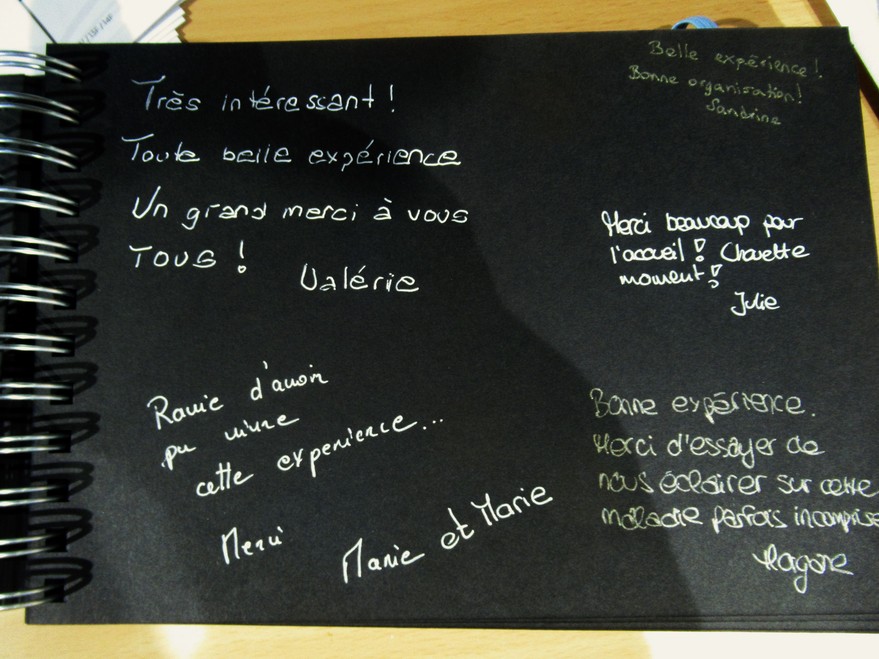 Très intéressant !
Toute belle expérience
Un grand merci à vous
TOUS !
Valérie
Belle expérience !
Bonne organisation !
Sandrine
Merci beaucoup pour
l'accueil ! Chouette
moment !
Julie
Ravie d'avoir
pu vivre
cette experience...
Merci
Marie et Marie
Bonne expérience.
Merci d'essayer de
nous éclairer sur cette
maladie parfois incomprise